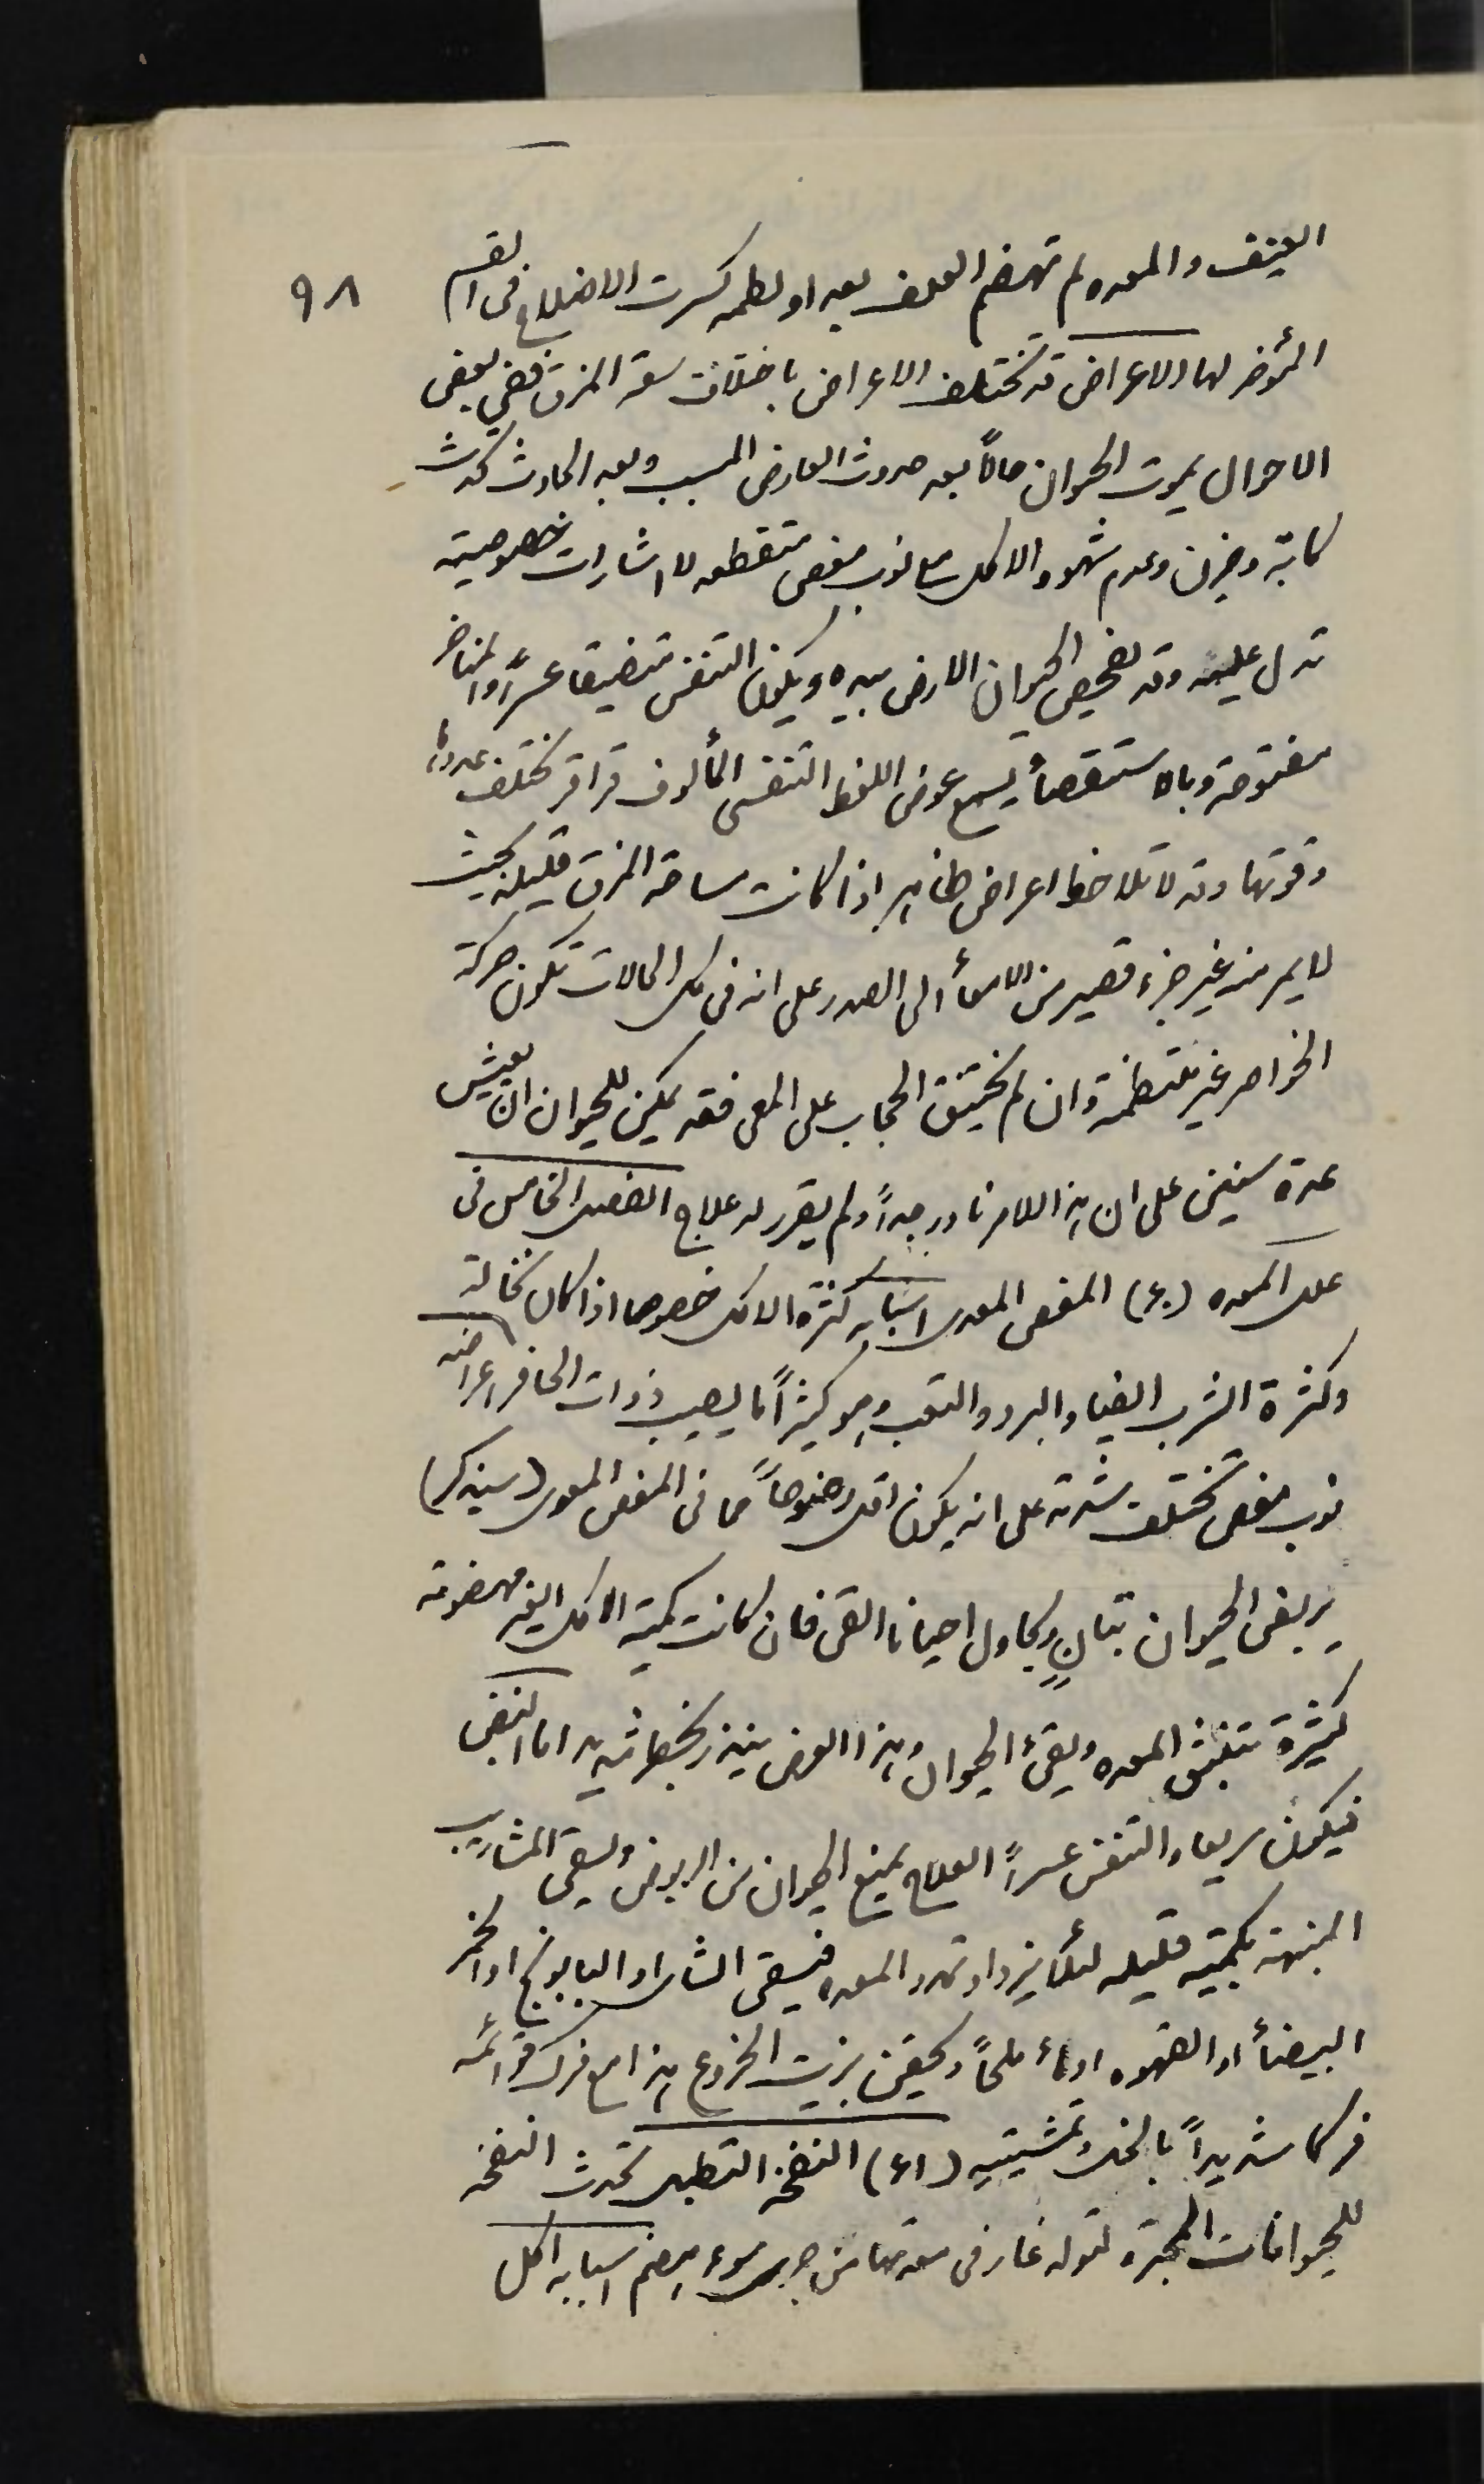 ٩٨
العنيف والمعده لم تهضم العلف بعد او لطمه كسرت الاضلاع فى القسم
المؤخر لها الاعراض قد تختلف الاعراض باختلاف سعة المزق ففي بعض
الاحوال يموت الحيوان حالاً بعد حدوث العارض المسبب وبعد الحادث تحدث
كابة وحزن وعدم شهوه الاكل مع نوب مغص متقطعه لا اشارات خصوصية
تدل عليه وقد يفحص الحيوان الارض بيده ويكون التنفس متضيقا عسراً والمناخر
مفتوحة وبالاستقصأ يسمع عوض اللغط التنفسى المألوف قراقر تختلف عددها
وقوتها وقد لا تلاحظ اعراض ظاهره اذا كانت مساحة المزق قليله بحيث
لا يمر منه غير جزء قصير من الامعأ الى الصدر على انه فى كل الحالات تكون حركة
الخواصر غير منتظمة وان لم يختنق الحجاب على المعى فقد يمكن للحيوان ان يعيش
عدة سنين على ان هذا الامر نادر جداً ولم يقرر له علاج الفصل الخامس فى
علل المعده (٤٠) المغص المعدى اسبابه كثرة الاكل خصوصا اذا كان نخالة
وكثرة الشرب ايضا والبرد والتعب وهو كثيراً ما يصيب ذوات الحافر اعراضه
نوب مغص تختلف شدته على انه يكون اقل وضوحاً مما فى المغص المعوى (سيذكر)
يربض الحيوان بتأنٍ ويحاول احيانا القى فان كانت كمية الاكل الغير مهضومة
كثيرة تنفخ المعده ويقئ الحيوان وهذا العرض ينذر بخطر شديد اما النبض
فيكون سريعا والتنفس عسراً العلاج يمنع الحيوان من الربوض ويسقى المشاريب
المنبهة بكمية قليله لئلا يزداد تمدد المعده فيسقى الشاى او البابونج او الخمر
البيضأ او القهوه او مأ ملحاً ويحقن بزيت الخروع هذا مع فرك قوائمه
فركا شديداً بالخل وتمشيته (٤١) النفخة التطبلى تحدث النفخة
للحيوانات المجترة لتولد غاز فى معدتها من جرى سوء هضم اسبابه اكل